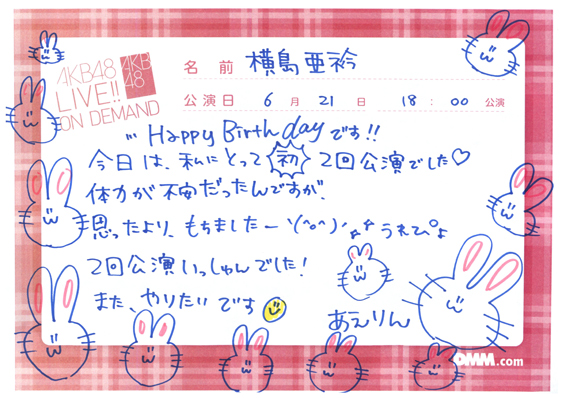 AKB48
LIVE!!
ON DEMAND
AKB
48
名 前 横島亜衿
公演日 6 月 21 日 18 : 00 公演
"Happy Birthdayです!!
今日は、私にとって初2回公演でした♡
体力が不安だったんですが、
思ったより、もちましたー\(^o^)/ うれぴょ
2回公演いっしゅんでした!
また、やりたいです
あえりん
DMM.com